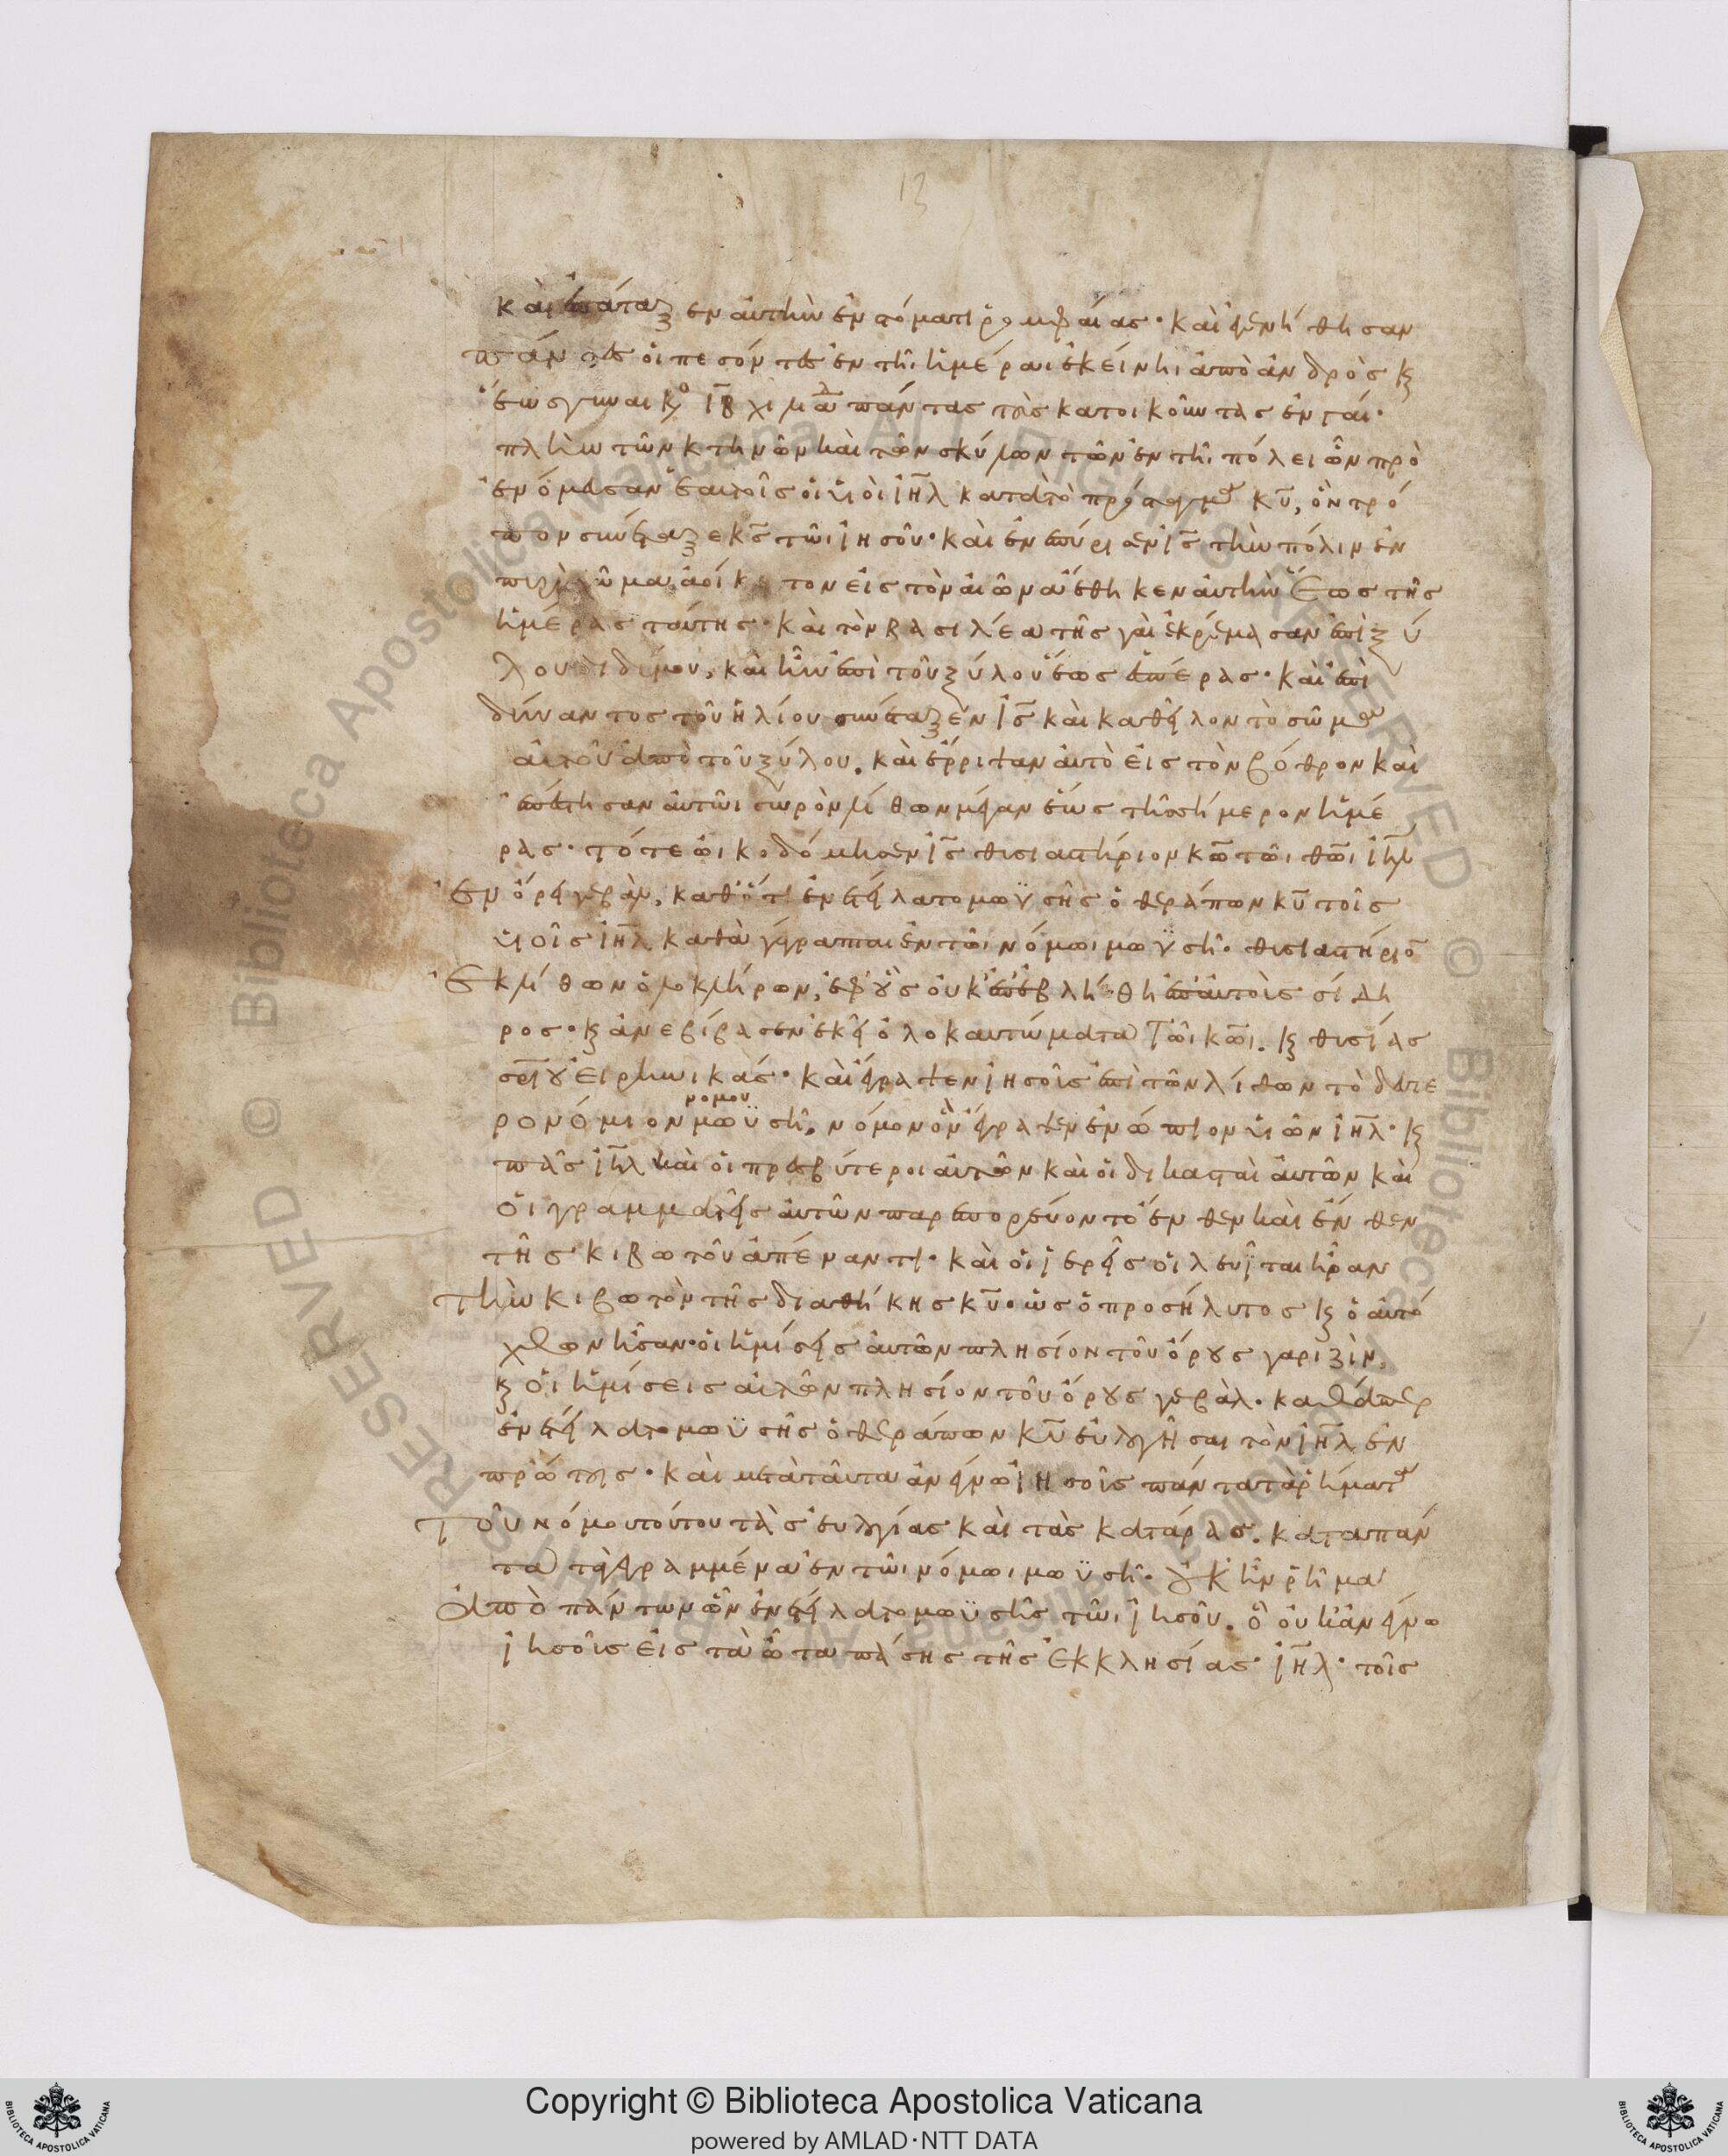 13
καὶ ἐπάταξεν αὐτὴν ἐν στόματι ῥομφαίας· καὶ ἐγενήθησαν
πάντες οἱ πεσόντες ἐν τῆι ἡμέραι ἐκείνηι ἀπὸ ἀνδρὸς κ
ἕως γυναικὸ ιβ χιλιαδ πάντας τοὺς κατοικοῦντας ἐν γαί·
πλὴν τῶν κτηνῶν καὶ τῶν σκύλων τῶν ἐν τῆι πόλει ὧν προ
ἐνόμευσαν ἑαυτοῖς οἱ υἱοὶ ιηλ κατὰ τὸ πρόσταγμα κυ, ὃν τρό
πον συνέταξε κς τῶι ἰησοῦ· καὶ ἐνεπύρισεν ις τὴν πόλιν ἐν
πυρὶ χῶμα ἀοίκητον εἰς τὸν αἰῶνα ἔθηκεν αὐτὴν ἕως τῆς
ἡμέρας ταύτης· καὶ τὸν βασιλέα τῆς γαὶ ἐκρέμασαν ἐπὶ ξύ
λου διδύμου, καὶ ἦν ἐπὶ τοῦ ξύλου ἕως ἑσπέρας· καὶ ἐπι
δύναντος τοῦ ἡλίου συνέταξεν ις καὶ καθεῖλον τὸ σῶμα
αὐτοῦ ἀπὸ τοῦ ξύλου. καὶ ἔρριψαν αὐτὸ εἰς τὸν βόθρον καὶ
ἐπέστησαν αὐτῶι σωρὸν λίθων μέγαν ἕως τῆς σήμερον ἡμέ
ρας· τότε ὠικοδόμησεν ις θυσιαστήριον κω τῶι θωι ιηλ
ἐν ὄρει γεβάλ, καθότι ἐνετείλατο μωϋσῆς ὁ θεράπων κυ τοῖς
υἱοῖς ιηλ καθὰ γέγραπται ἐν τῶι νόμωι μωϋσῆ· θυσιαστήριο
ἐκ λίθων ὁλοκλήρων, ἐφ' οὓς οὐκ ἐπεβλήθη ἐπ' αὐτοὺς σίδη
ρος· κ ἀνεβίβασεν ἐκεῖ ὁλοκαυτώματα τῶι κωι. κ θυσίας
σριου εἰρηνικάς· καὶ ἔγραψεν ἰησοῦς ἐπὶ τῶν λίθων τὸ δευτε
νομου
ρονόμιον μωϋσῆ. νόμον ὃν ἔγραψεν ἐνώπιον υἱῶν ιηλ· κ
πᾶς ιηλ καὶ οἱ πρεσβύτεροι αὐτῶν καὶ οἱ δικασταὶ αὐτῶν καὶ
οἱ γραμματεῖς αὐτῶν παρεπορεύοντο ἔνθεν καὶ ἔνθεν
τῆς κιβωτοῦ ἀπέναντι· καὶ οἱ ἱερεῖς οἱ λευῖται ἦραν
τὴν κιβωτὸν τῆς διαθήκης κυ· ὡς ὁ προσήλυτος κ ὁ αὐτό
χθων ἦσαν· οἱ ἡμίσεις αὐτῶν πλησίον τοῦ ὄρους γαριζὶν,
κ οἱ ἡμίσεις αὐτῶν πλησίον τοῦ ὄρους γεβάλ. καθάπερ
ἐνετείλατο μωϋσῆς ὁ θεράπων κυ εὐλογῆσαι τὸν ιηλ ἐν
πρώτοις· καὶ μετὰ ταῦτα ἀνέγνω ἰησοῦς πάντα τὰ ῥήματα
τοῦ νόμου τούτου τὰς εὐλογίας καὶ τὰς κατάρας. κατὰ πάν
τα τὰ γεγραμμένα ἐν τῶι νόμωι μωϋσῆ· οὐκ ἦν ῥῆμα
ἀπὸ πάντων ὧν ἐνετείλατο μωϋσῆς τῶι ἰησοῦ. ὃ οὐκ ἀνέγνω
ἰησοῦς εἰς τὰ ὦτα πάσης τῆς ἐκκλησίας ιηλ· τοῖς
Copyright © Biblioteca Apostolica Vaticana
powered by AMLAD·NTT DATA